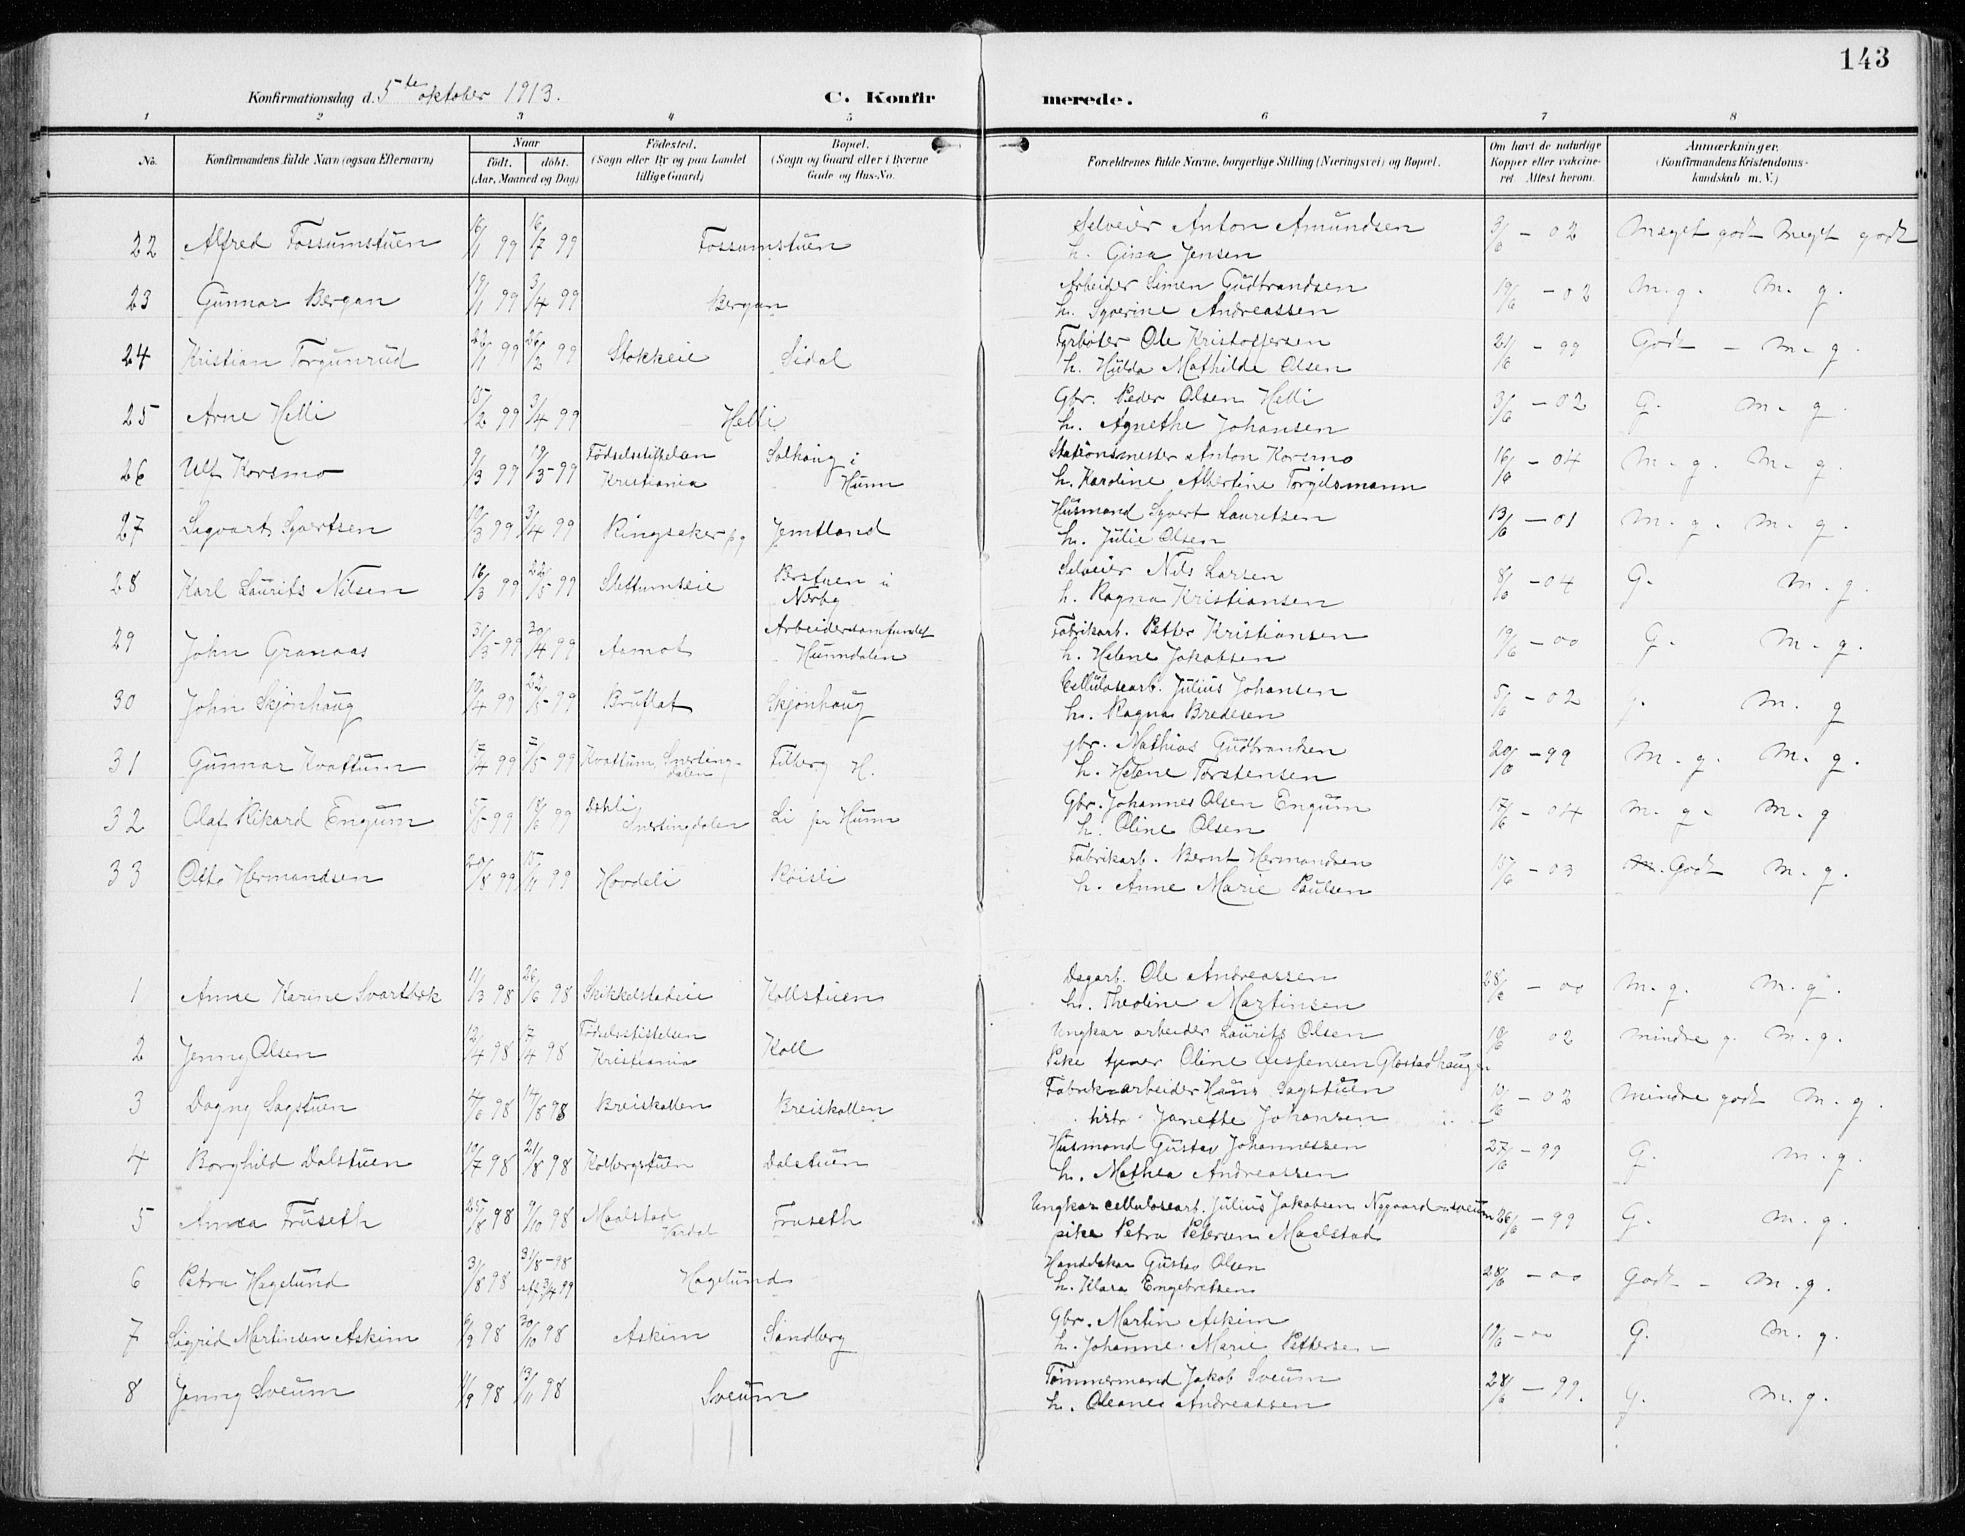 143
Konfirmationsdag d. 5te oktober 1913. C. Konfirmerede.
1 2 3 4 5 6 7 8
No. Konfirmandens fulde Navn (ogsaa Efternavn) Naar født. døbt. (Aar, Maaned og Dag) Fødested. (Sogn eller By og paa Landet tillige Gaard) Bopæl. (Sogn og Gaard eller i Byerne Gade og Hus-No. Forældrenes fulde Navne, borgerlige Stilling (Næringsvei) og Bopæl. Om havt de naturlige Kopper eller vakcineret Attest herom. Anmærkninger. (Konfirmandens Kristendomskundskab m. V.)
22 Alfred Fossumstuen 16/1 99 16/7 99 Fossumstuen Selveier Anton Amundsen 3/6 - 02 Meget godt Meget godt
h. Gina Jensen
23 Gunnar Bergan 19/1 99 3/4 99 Bergan Arbeider Simen Gudbrandsen 19/6 - 02 M. g. M. g.
h. Syverine Andreassen
24 Kristian Torgunrud 99 26/2 99 Stokkeie Sidal Fyrbøter Ole Kristoffersen 21/6 - 99 Godt - M. g.
h. Hulda Mathilde Olsen
25 Arne Helli 2 99 3/4 99 Helli Gbr. Peder Olsen Helli 3/6 - 02 G. M. g.
h. Agnethe Johansen
26 Ulf Korsmo 9/3 99 19/3 - 99 Fødselsstiftelsen Kristiania Solhaug i Hunn Stationsmester Anton Korsmo 16/6 - 04 M. g. M. g.
h. Karoline Albertine Torgilsmann
27 Sigvart Syvertsen 3 99 3/4 99 Ringsaker pg Jemtland Husmand Syvert Lauritsen 13/6 - 01 M. g. M. g.
h. Julie Olsen
28 Karl Laurits Nilsen 16/3 99 22/5 99 Slettumseie i Nørby Selveier Nils Larsen 8/6 - 04 G. M. g.
h. Ragna Kristiansen
29 John Granaas 31/3 - 99 30/4 99 Aamot Arbeidersamfundet Hunndalen Fabrikarb. Petter Kristiansen 19/6 - 00 G. M. g.
h. Helene Jakobsen
30 John Skjønhaug 4 99 99 Bruflat Skjønhaug Cellulosearb. Julius Johansen 5/6 - 02 g. M. g
h. Ragna Bredesen
31 Gunnar Kvattum 4 99 5 99 Kvattum, Snertingdalen Filberg H. gbr. Mathias Gudbransen 20/6 - 99 M. g. M. g.
h. Helene Torstensen
32 Olaf Rikard Engum 99 18/6 99 Dahli Snertingdalen Li pr Hunn Gbr. Johannes Olsen Engum 17/6 - 04 M. g. M. g
h. Oline Olsen
33 Otto Hermandsen 8 99 15/11 99 Hovdeli Røisli Fabrikarb. Bernt Hermandsen 6 - 03 Godt M. g.
h. Anne Marie Paulsen
1 Anne Karine Svartbek 11/3 98 26/6 98 Skikkelstadeie Kollstuen Dagarb. Ole Andreassen 28/6 - 00 M. g. M. g.
h. Theoline Martinsen
2 Jenny Olsen 12/4 98 17/4 98 Fødselsstiftelsen Kristiania Koll Ungkar arbeider Laurits Olsen 02 mindre g. M. g.
Pike tjener Oline Jespensen Glæstadhaugen
3 Dagny Sagstuen 6 98 14/8 98 Breiskallen Breiskallen Fabrikarbeider Hans Sagstuen 6 - 02 Mindre godt M. g.
hstr. Janette Johansen
4 Borghild Dalstuen 10/7 98 21/8 98 Kolbergstuen Dalstuen Husmand Gustav Johannessen 27/6 - 99 G. M. g.
h. Mathea Andreassen
5 Anna Fruseth 25/8 98 9/10 98 Maalstad Vardal Fruseth Ungkar cellulosearb. Julius Jakobsen Nygaard - 26/6 - 99 G. M. g.
pike Petra Petersen Maalstad
6 Petra Hagelund 31/8 98 31/8 - 98 3/4 99 Hagelund Handelskar Gustav Olsen 28/6 - 00 Godt - M. g.
h. Klara Engebretsen
7 Sigrid Martinsen Askim 9 98 30/10 98 Askim Sandberg Gbr. Martin Askim 19/6 - 00 G. M. g.
h. Johanne Marie Pettersen
8 Jenny Sveum 9 98 13/11 98 Sveum Tømmermand Jakob Sveum 28/6 - 99. g. M. g.
h. Oleanes Andreassen